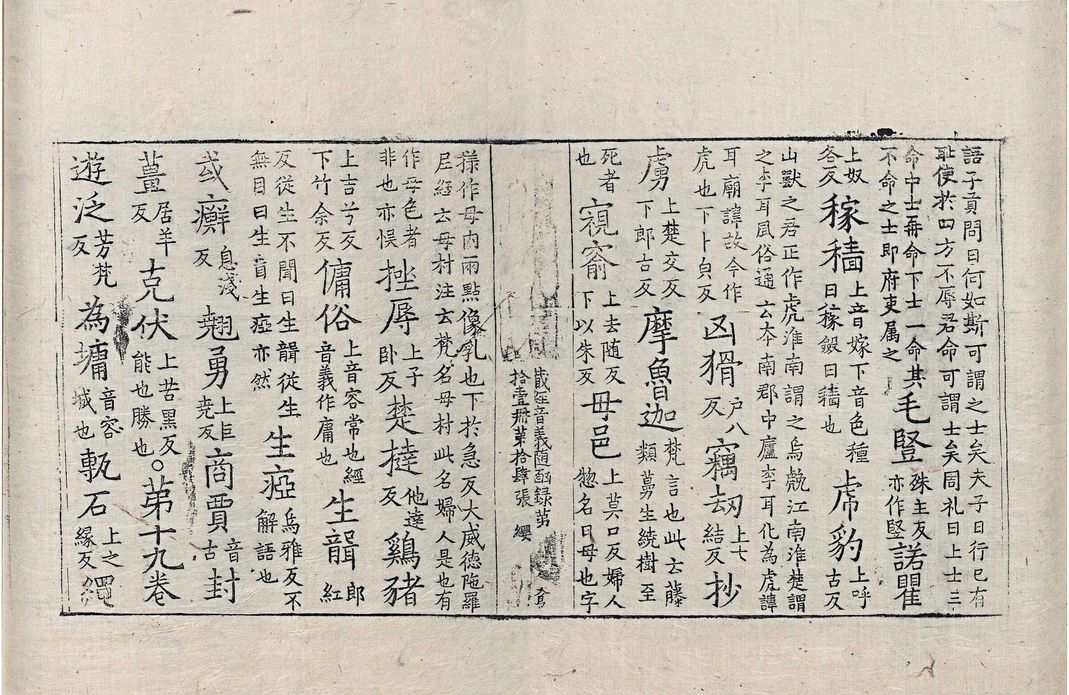 語子貢問曰何如斯可謂之士矣夫子曰行己有
耻使於四方不辱君命可謂士矣周礼曰上士三
命中士再命下士一命其
不命之士即府吏属之
毛竪
殊主反
亦作竪
諾瞿
上奴
各反
稼穡
上音嫁下音色種
曰稼斂曰穡也
虎豹
上呼
古反
山獸之君正作虎淮南謂之烏虝江南淮楚謂
之李耳風俗通云本南郡中廬李耳化為虎諱
耳廟諱故今作
虎也下卜皃反
凶猾
户八
反
竊刧
上七
結反
抄
虜
上楚交反
下郎古反
摩魯迦
梵言也此云藤
類蔓生繞樹至
死者
也
窺窬
上去随反
下以朱反
母邑
上莫口反婦人
惣名曰母也字
藏経音義随函録第
拾壹冊第拾肆張 纓
樣作母内兩點像乳也下於急反大威德陁羅
尼経云母村注云梵名母村此名婦人是也有
作毋色者
非也亦悞
挫辱
上子
卧反
楚撻
他達
反
鷄猪
上吉兮反
下竹余反
傭俗
上音容常也經
音義作庸也
生聾
郎
紅
反從生不聞曰生聾從生
無目曰生盲生瘂亦然
生瘂
烏雅反不
解語也
或癬
息淺
反
翹勇
上巨
堯反
商賈
音
古
封
薑
居羊
反
克伏
上苦黑反
能也勝也
○第十九卷
遊泛
芳梵
反
為墉
音容
城也
甎石
上之
緣反
繩